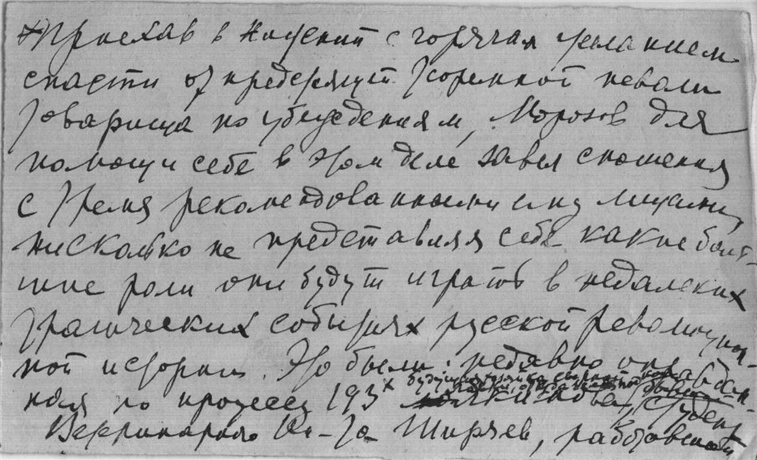 Приехав в  с горячим желанием
спасти от предстоящей тюремной неволи
товарища по убеждениям, Морозов для
помощи себе в этом деле завел сношения
с тремя рекомендованными ему лицами,
нисколько не представляя себе какие боль-
шие роли они будут играть в недалеких
трагических событиях русской революцион-
ной истории. Это были: недавно оправдан-
ная по процессу 193х Якимова, студент
Ветеринарного Ин-та Ширяев, работавший